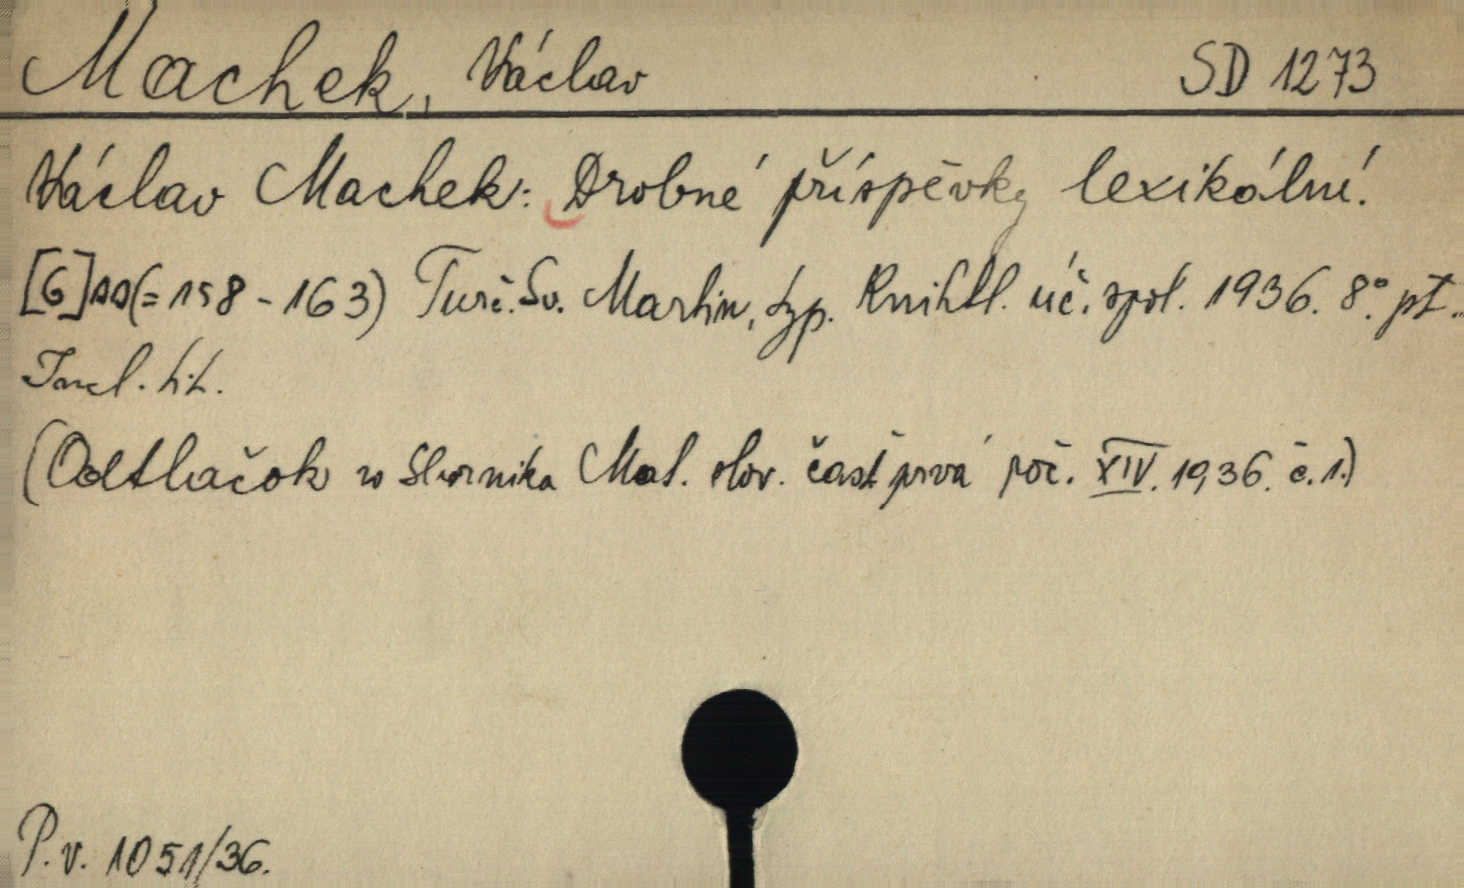 Machek, Václav SD 1273
Václav Machek: Drobné příspěvky lexikální.
[6]ss(=158-163) Turč. Sv. Martin, typ. Knihtl. úč. spol. 1936. 8°. pt.
Incl. tit.
(Odtlačok zo Sborníka Mat. slov. časť prvá roč. XIV. 1936. č. 1.)
P. v. 1051/36.